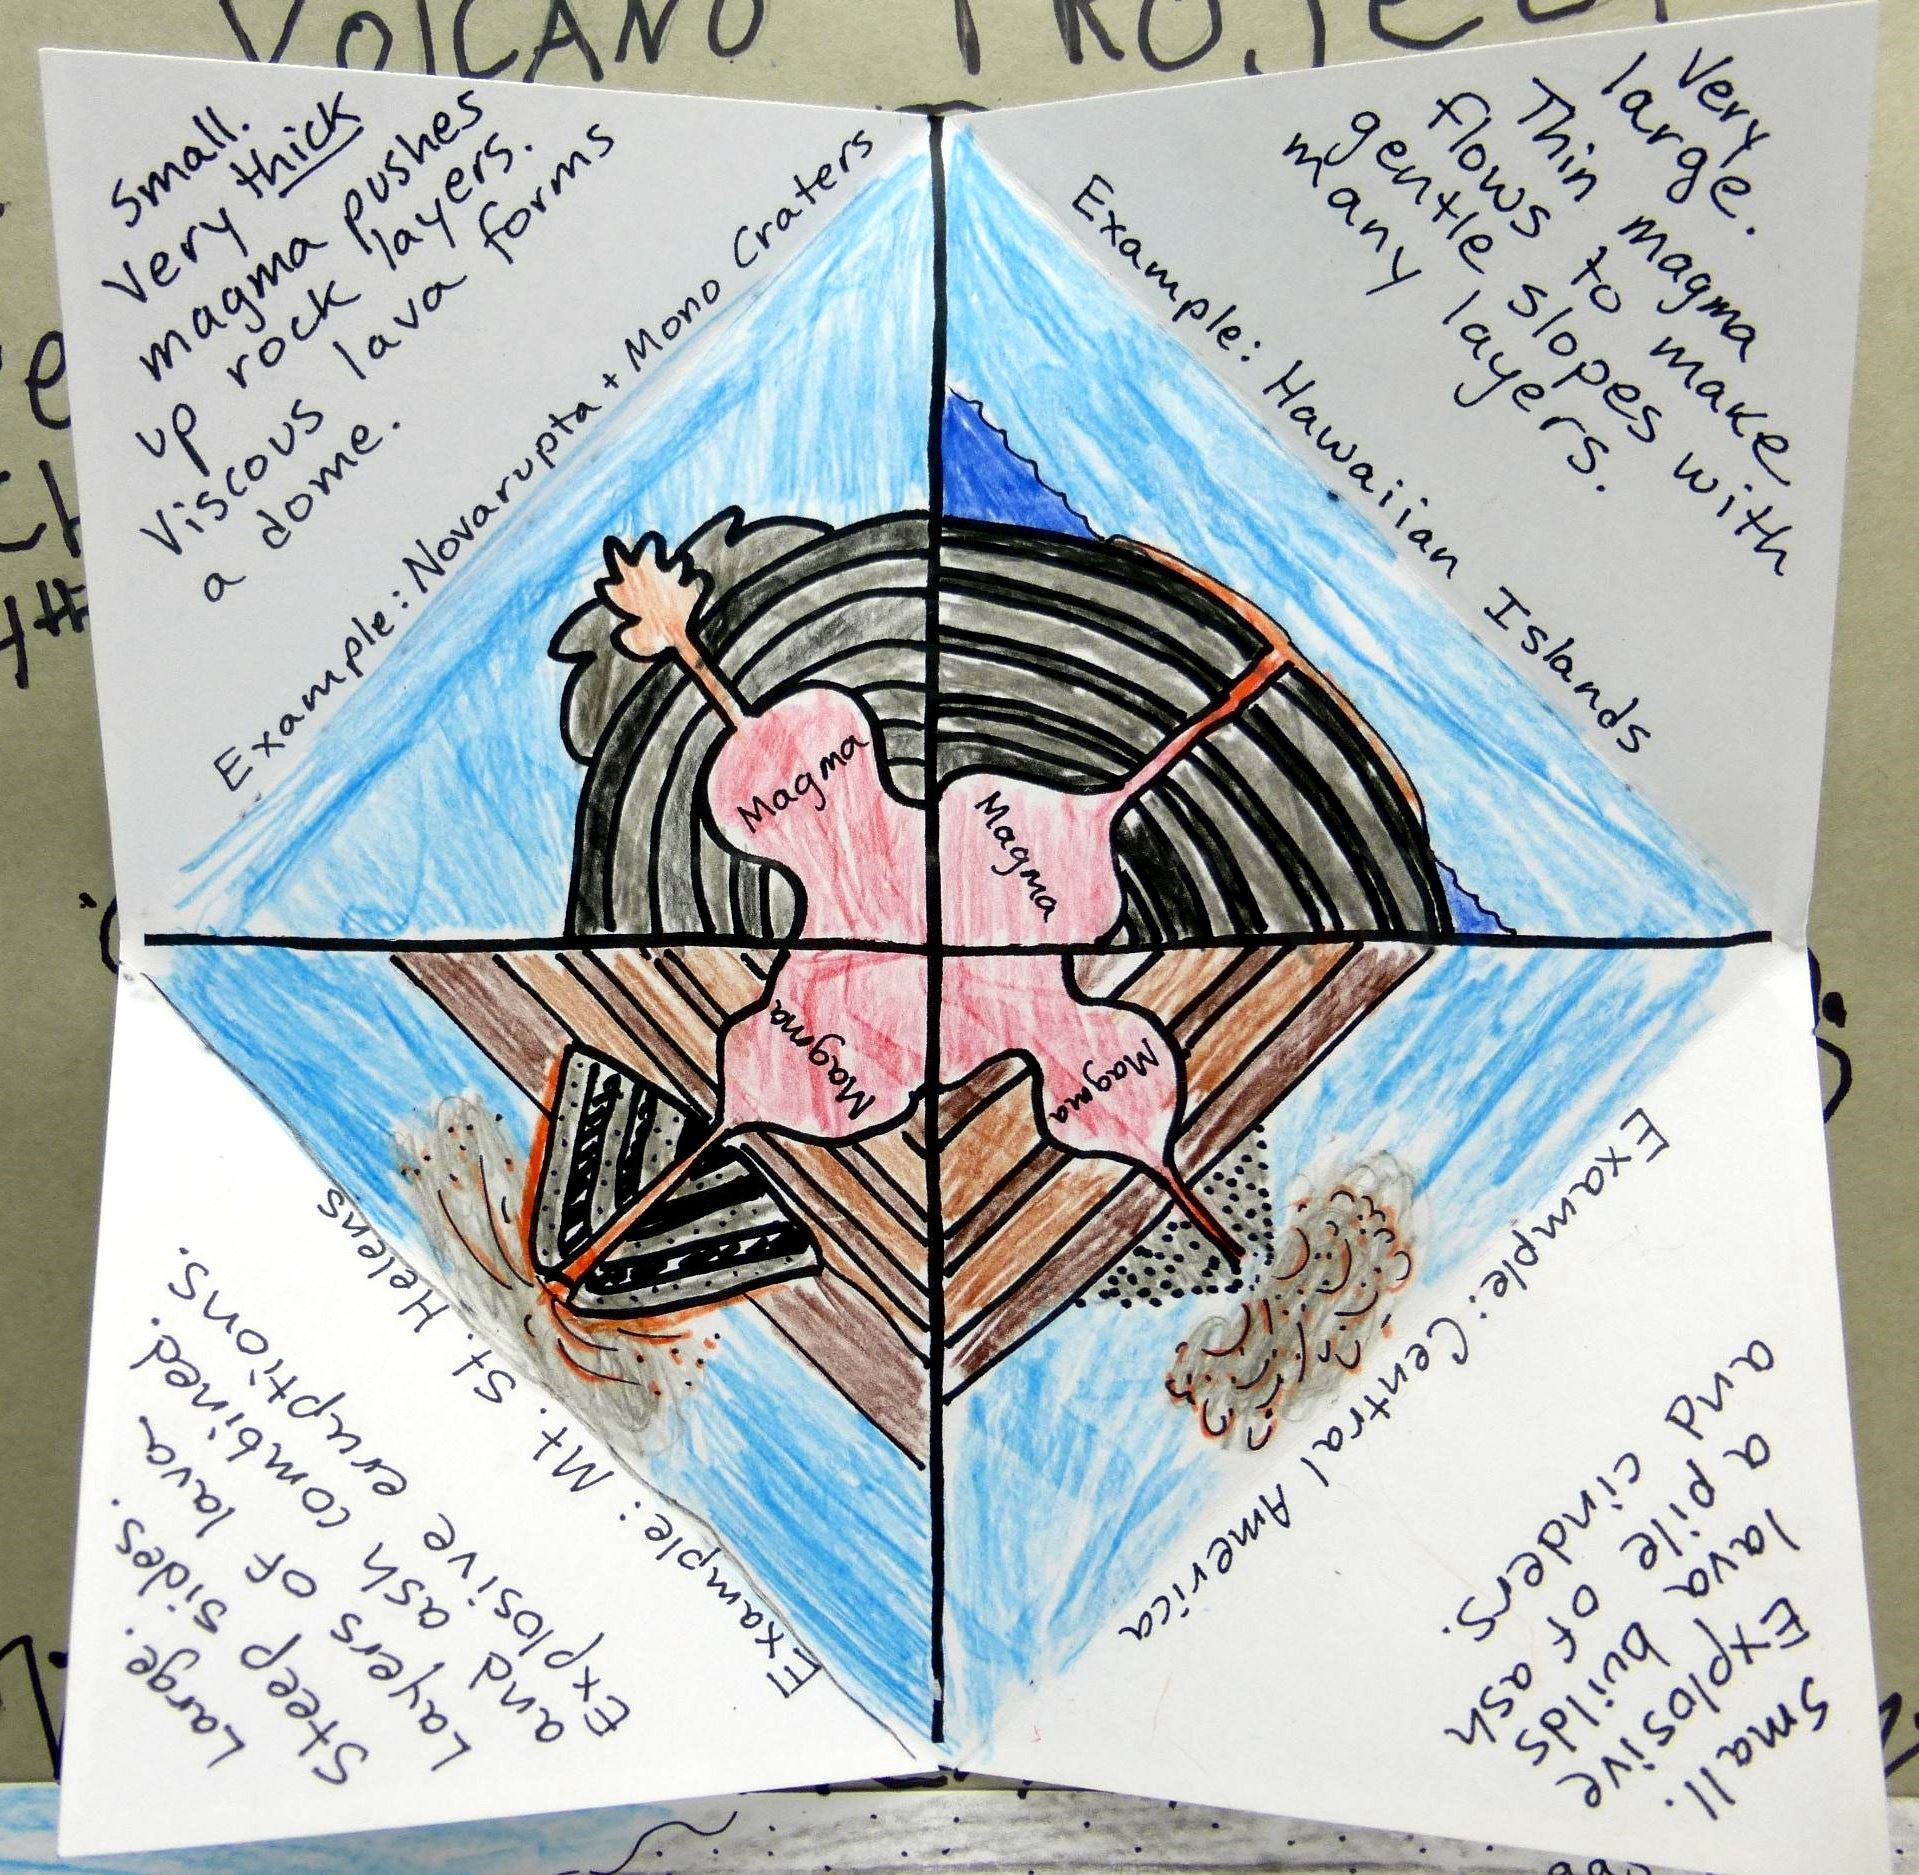 VOLCANO PROJECT
Small.
Very thick
magma pushes
up rock layers.
Viscous lava forms
a dome.
Example: Novarupta + Mono Craters
Very
large.
Thin magma
flows to make
gentle slopes with
many layers.
Example: Hawaiian Islands
Magma
Magma
Magma
Magma
Large.
Steep sides.
Layers of lava
and ash combined.
Explosive eruptions.
Example: Mt. St. Helens
Small.
Explosive
lava builds
a pile of ash
and cinders.
Example: Central America